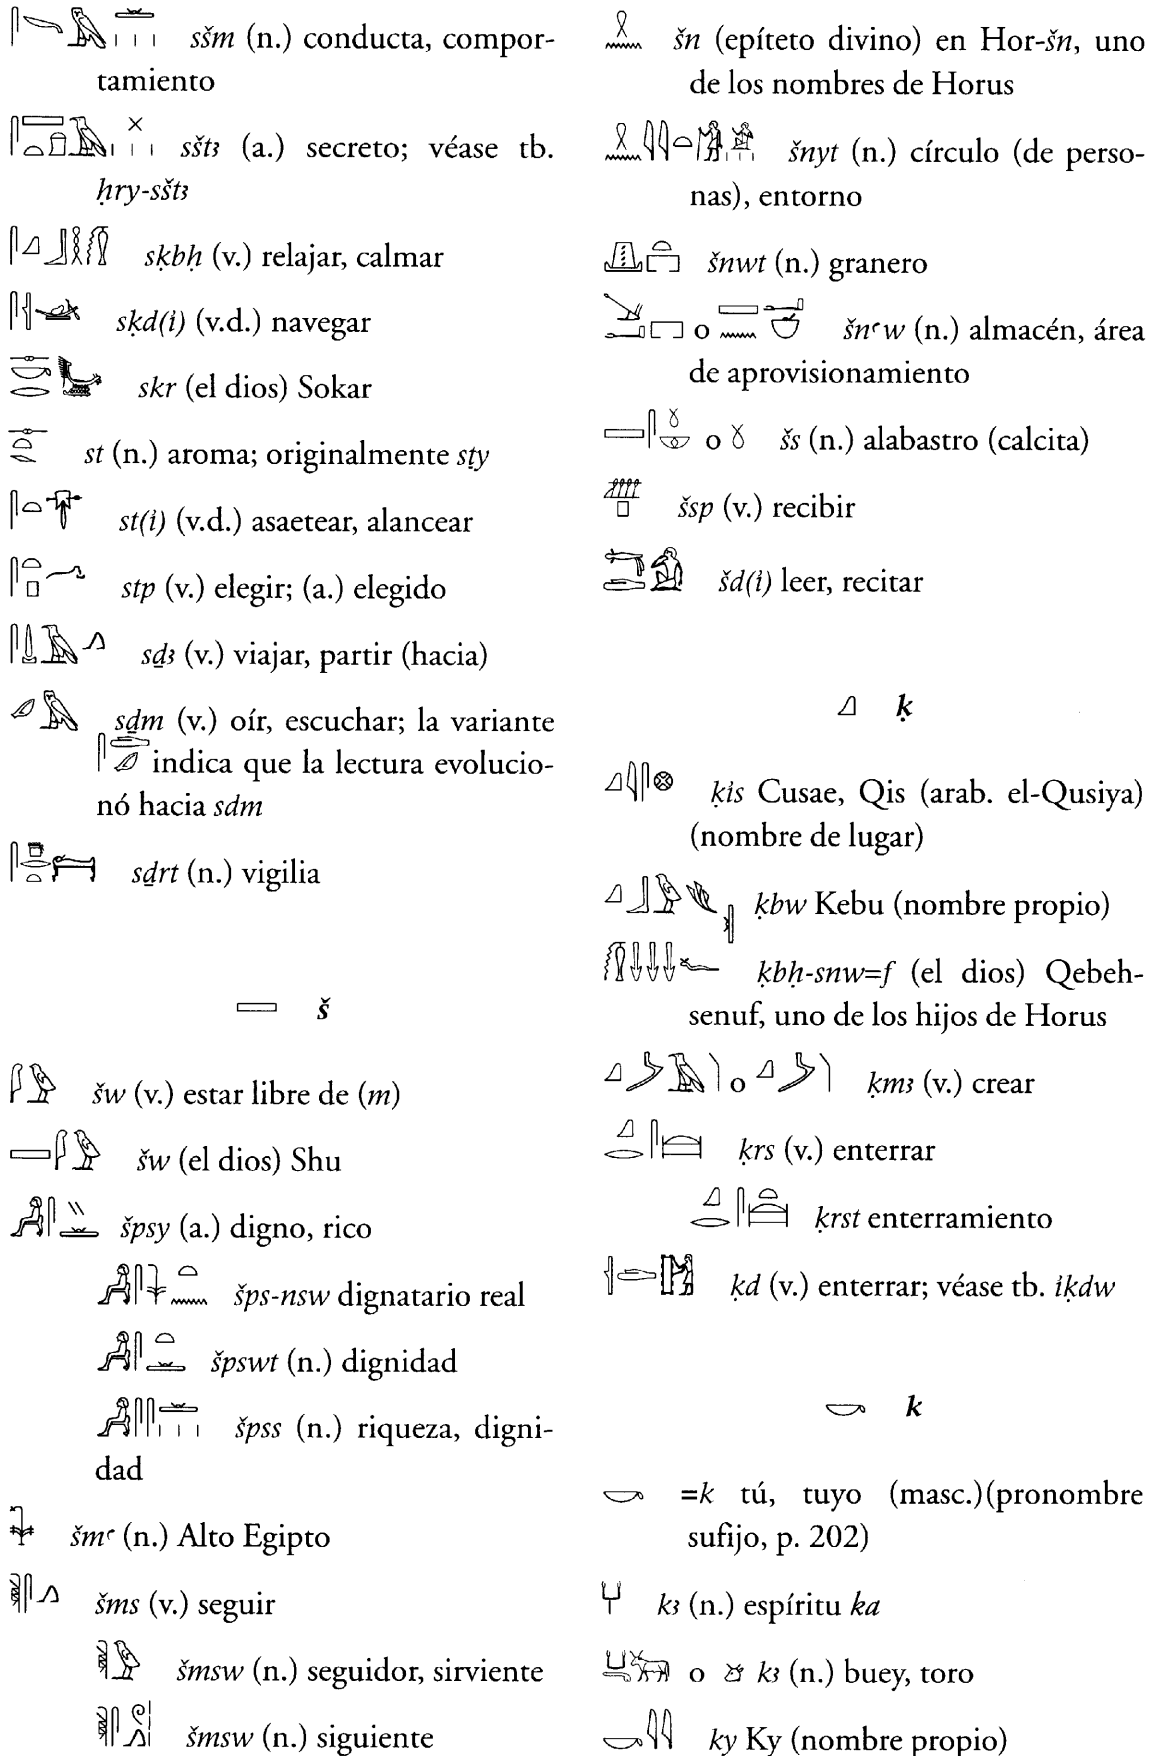 sšm (n.) conducta, compor-
tamiento
sštꜣ (a.) secreto; véase tb.
ḥry-sštꜣ
sḳbḥ (v.) relajar, calmar
sḳd(ỉ) (v.d.) navegar
skr (el dios) Sokar
st (n.) aroma; originalmente sṯy
st(ỉ) (v.d.) asaetear, alancear
stp (v.) elegir; (a.) elegido
sḏꜣ (v.) viajar, partir (hacia)
sḏm (v.) oír, escuchar; la variante
indica que la lectura evolucio-
nó hacia sdm
sḏrt (n.) vigilia
š
šw (v.) estar libre de (m)
šw (el dios) Shu
špsy (a.) digno, rico
šps-nsw dignatario real
špswt (n.) dignidad
špss (n.) riqueza, digni-
dad
šmꜥ (n.) Alto Egipto
šms (v.) seguir
šmsw (n.) seguidor, sirviente
šmsw (n.) siguiente
šn (epíteto divino) en Hor-šn, uno
de los nombres de Horus
šnyt (n.) círculo (de perso-
nas), entorno
šnwt (n.) granero
o šnꜥw (n.) almacén, área
de aprovisionamiento
o šs (n.) alabastro (calcita)
šsp (v.) recibir
šd(ỉ) leer, recitar
ḳ
ḳỉs Cusae, Qis (arab. el-Qusiya)
(nombre de lugar)
ḳbw Kebu (nombre propio)
ḳbḥ-snw=f (el dios) Qebeh-
senuf, uno de los hijos de Horus
o ḳmꜣ (v.) crear
ḳrs (v.) enterrar
ḳrst enterramiento
ḳd (v.) enterrar; véase tb. ỉḳdw
k
=k tú, tuyo (masc.)(pronombre
sufijo, p. 202)
kꜣ (n.) espíritu ka
o kꜣ (n.) buey, toro
ky Ky (nombre propio)